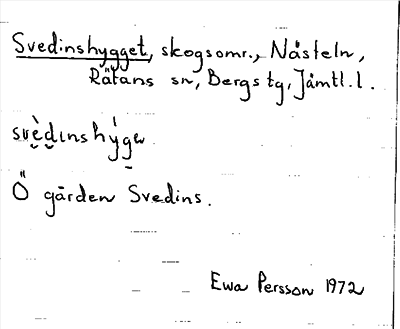 Svedinshygget, skogsomr., Nästeln,
Rätans sn, Bergs tg, Jämtl. l.
svè̬d̬ınshýgə
Ö gården Svedins.
Ewa Persson 1972